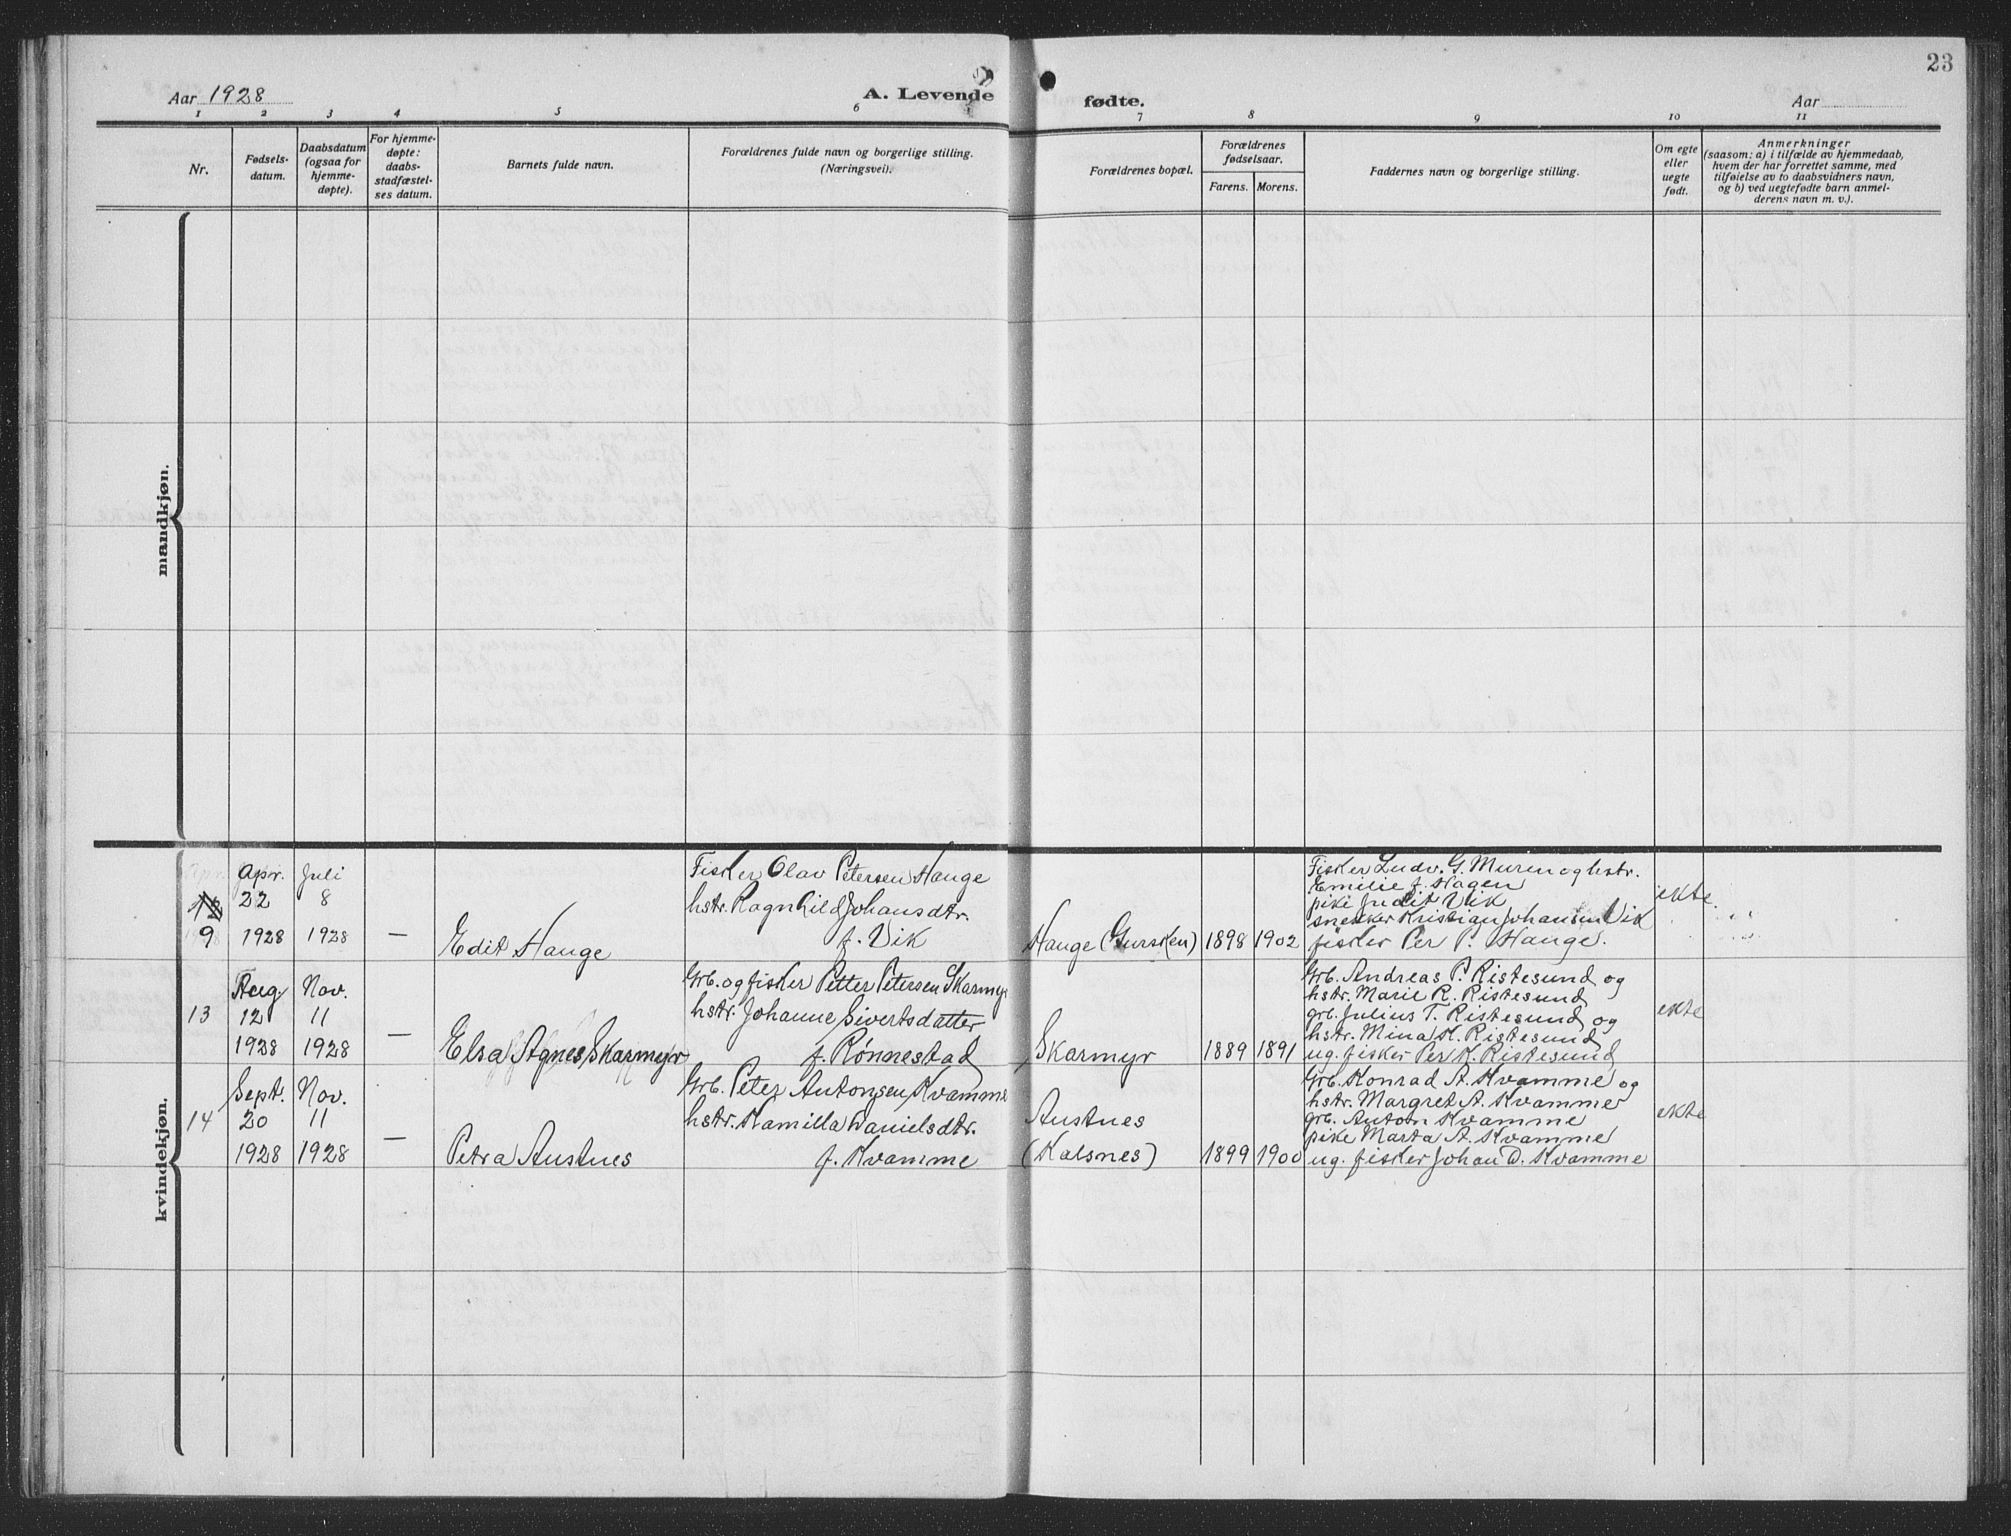 23
Aar 1928
A. Levende
fødte.
Aar
1 2 3 4 5 6 7 8 9 10 11
Nr.
Fødsels-
datum.
Daabsdatum
(ogsaa for
hjemme-
døpte).
For hjemme-
døpte:
daabs-
stadfæstel-
ses datum.
Barnets fulde navn.
Forældrenes fulde navn og borgerlige stilling.
(Næringsvei).
Forældrenes bopæl.
Forældrenes
fødselsaar.
Farens. Morens.
Faddernes navn og borgerlige stilling.
Om egte
eller
uegte
født.
Anmerkninger
(saasom: a) i tilfælde av hjemmedaab,
hvem der har forrettet samme, med
tilføielse av to daabsvidners navn,
og b) ved uegtefødte barn anmel-
derens navn m. v.).
mandkjøn.
kvindekjøn.
12
9
Apr.
22
1928
Juli
8
1928
—
Edit Hauge
Fisker Olav Petersen Hauge
hstr. Ragnhild Johansdtr.
f. Vik
Hauge (Gursken)
1898
1902
Fisker Ludv. G. Muren og hstr.
Emilie f. Hagen
pike Judit Vik
snekker Kristian Johansen Vik
fisker Per P. Hauge.
ekte.
13
Aug.
12
1928
Nov.
11
1928
—
Elsa Agnes Skarmyr
Grb. og fisker Petter Petersen Skarmyr
hstr. Johanne Sivertsdatter
f. Rønnestad
Skarmyr
1889
1891
Grb. Andreas P. Ristesund og
hstr. Marie R. Ristesund
grb. Julius T. Ristesund og
hstr. Mina K. Ristesund
ug. fisker Per K. Ristesund
ekte
14
Sept.
20
1928
Nov.
11
1928
—
Petra Austnes
Grb. Peter Antonsen Kvamme
hstr. Kamilla Danielsdtr.
f. Kvamme
Austnes
(Kalsnes)
1899
1900
Grb. Konrad A. Kvamme og
hstr. Margret A. Kvamme
grb. Anton Kvamme
pike Marta A. Kvamme
ug. fisker Johan D. Kvamme
ekte